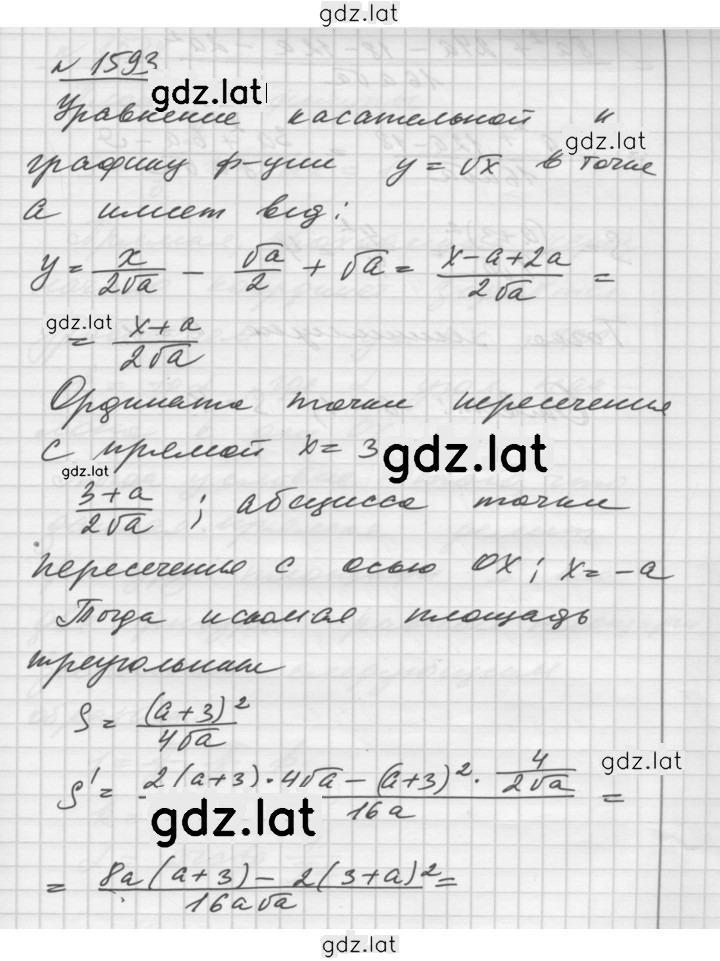 gdz.lat
№ 1593
gdz.lat
Уравнение касательной к
gdz.lat
графику ф-ции y = √x в точке
a имеет вид:
y = x/(2√a) − √a/2 + √a = (x−a+2a)/(2√a) =
gdz.lat
= (x+a)/(2√a)
Ордината точки пересечения
с прямой x = 3
gdz.lat
gdz.lat
(3+a)/(2√a) ; абсцисса точки
пересечения с осью OX; x = −a
Тогда искомая площадь
треугольника
S = (a+3)²/(4√a)
gdz.lat
S' = (2(a+3)·4√a − (a+3)²·4/(2√a))/(16a) =
gdz.lat
= (8a(a+3) − 2(3+a)²)/(16a√a) =
gdz.lat